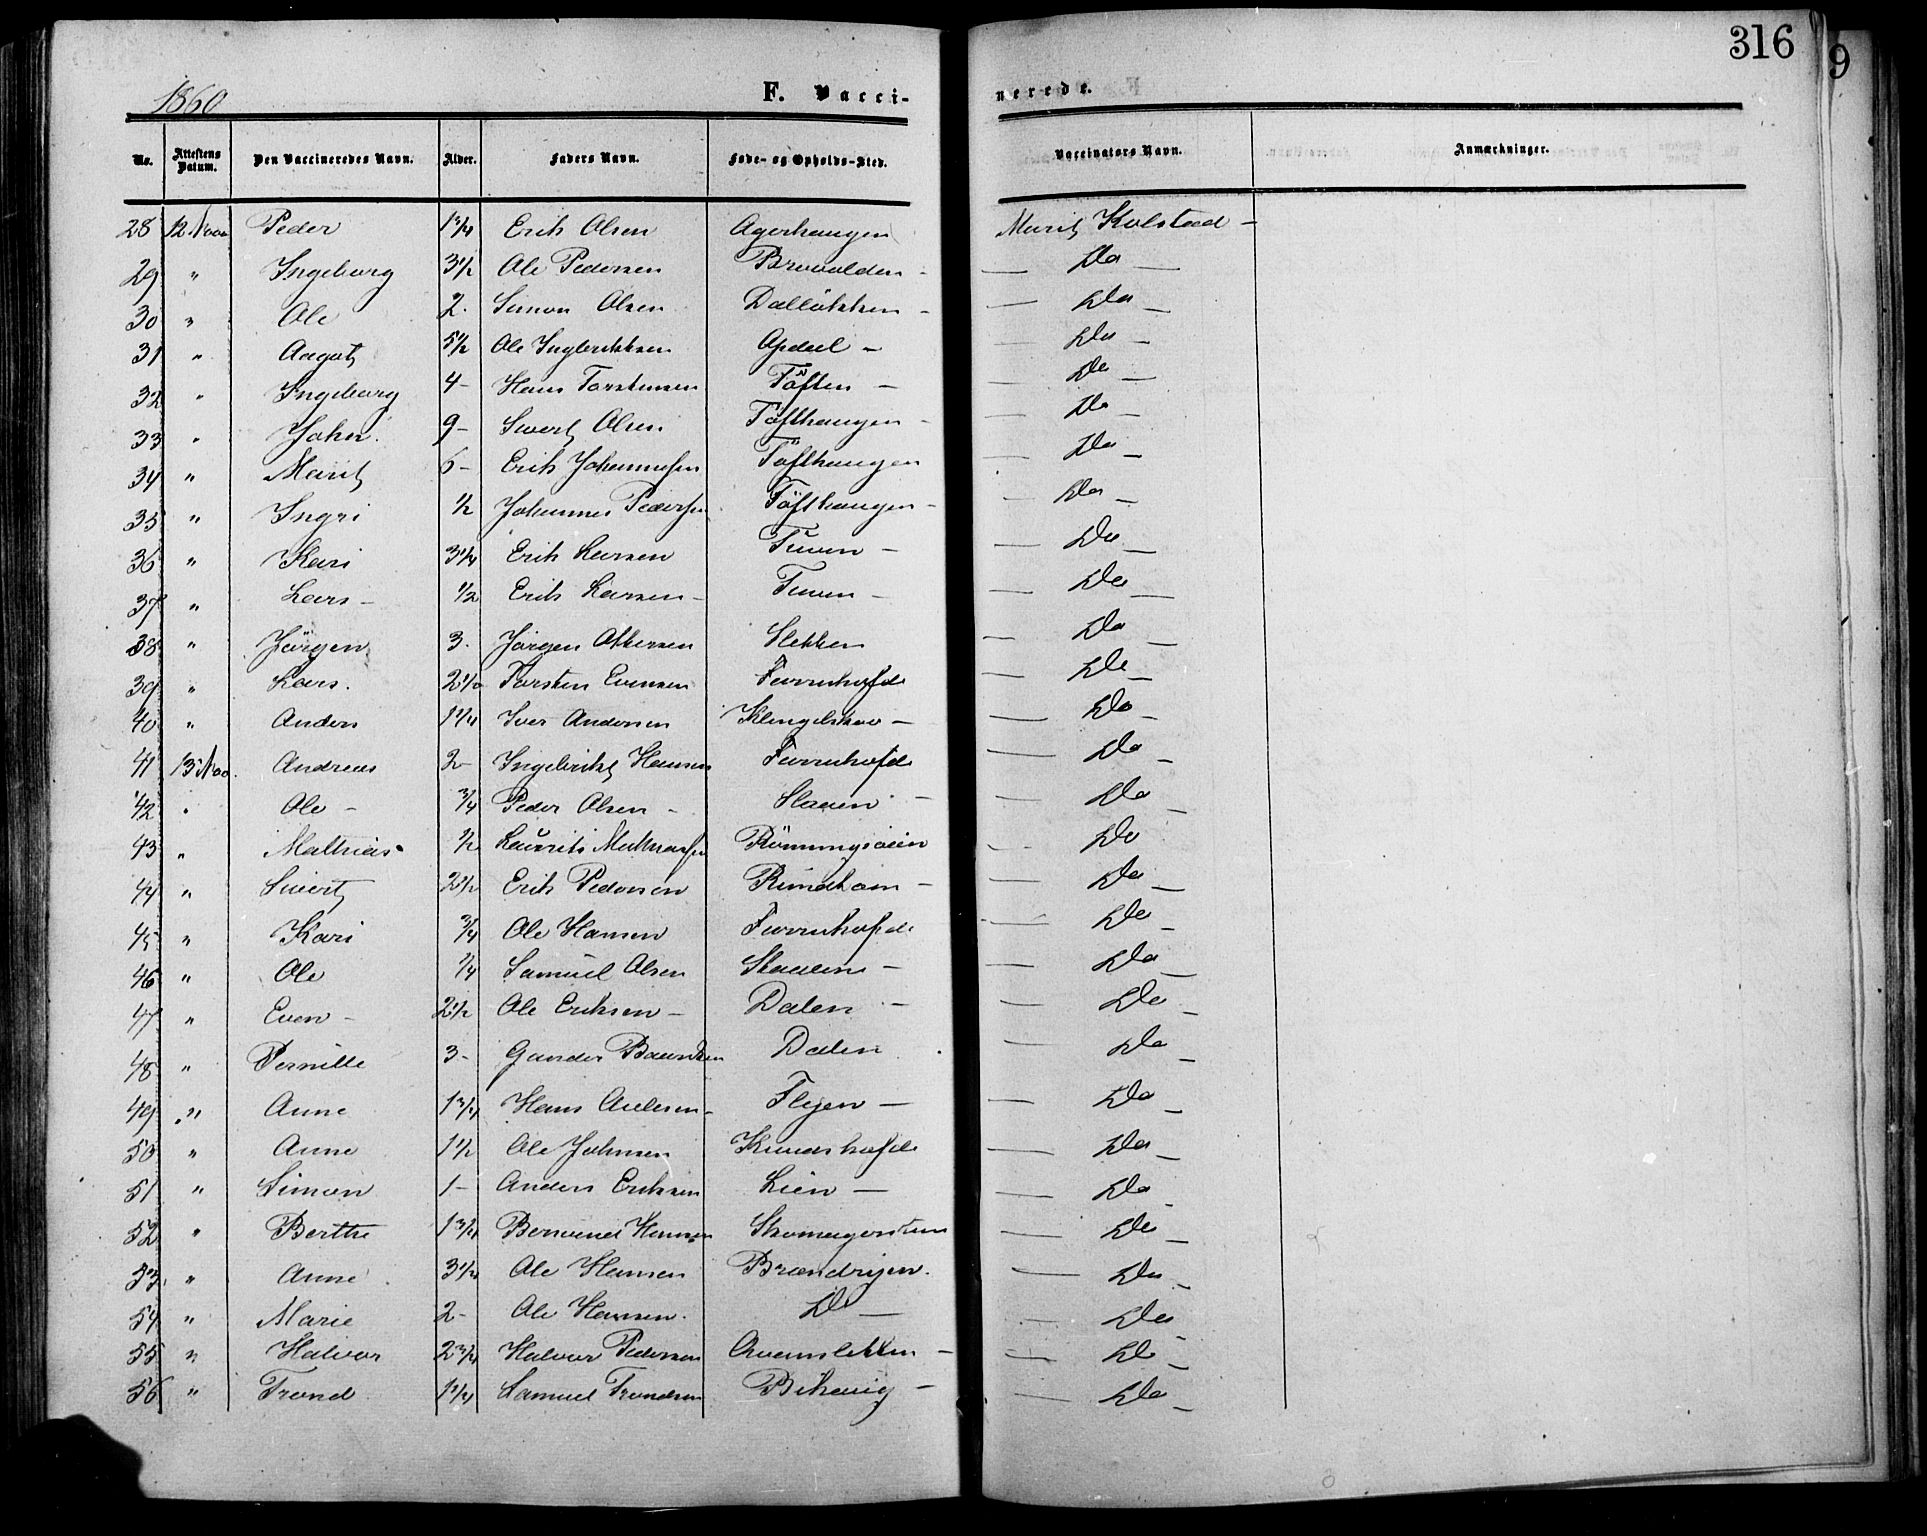 316
9
1860
F. Vacci-
nerede.
No. Attestens Datum. Den Vaccineredes Navn. Alder. Faders Navn. Føde- og Opholds-Sted. Vaccinators Navn. Anmærkninger.
28 12 Nov Peder 1 3/4 Erik Olsen Agerhaugen Marit Kolstad -
29 " Ingeborg 3 1/2 Ole Pedersen Brovolden - Do
30 " Ole 2. Simon Olsen Dalløkken - Do
31 " Aagot 5 1/2 Ole Ingbrikksen Opdal - Do
32 " Ingeborg 4 - Hans Torstensen Töften - Do
33 " John. 9 - Sivert Olsen Töfthaugen - Do
34 " Marit 6 - Erik Johannesen Töfthaugen Do
35 " Ingri 1/2 Johannes Pedersen Töfthaugen - Do
36 " Kari 3 1/4 Erik Larsen Tuven - Do
37 " Lars - 1/2 Erik Larsen - Tuven - Do
38 " Jörgen 3. Jörgen Slekken Do
39 " Lars. 2 1/2 Torsten Evensen Furruhofde Do
40 " Anders 1 1/4 Iver Andersen - Do
41 13 Nov. Andreas 2 - Ingebrikt Hansen Furruhofde Do
42 " Ole - 3/4 Peder Olsen - Do
43 " Mathias 1/2 Laurits Mathiasen Rönningsveien Do
44 " Sivert 2 1/2 Erik Pedersen - Do
45 " Kari 3/4 Ole Hansen Furruhofde Do
46 " Ole 1/4 Samuel Olsen - Do
47 " Even - 2 1/2 Ole Eriksen - Dalen - Do
48 " Pernille 3 - Gunder Dalen Do
49 " Anne 1 3/4 Hans Flyen - Do
50 " Anne 1 1/2 Ole Johnsen Do
51 " Simon 1 - Anders Eriksen Lien - Do
52 " Berthe 1 3/4 Hansen Do
53 " Anne 3 1/4 Ole Hansen Do
54 " Marie 2 - Ole Hansen. Do - Do
55 " Halvor 2 3/4 Halvor Pedersen - Do
56 " Trond 1 1/4 Samuel Trondsen - Do